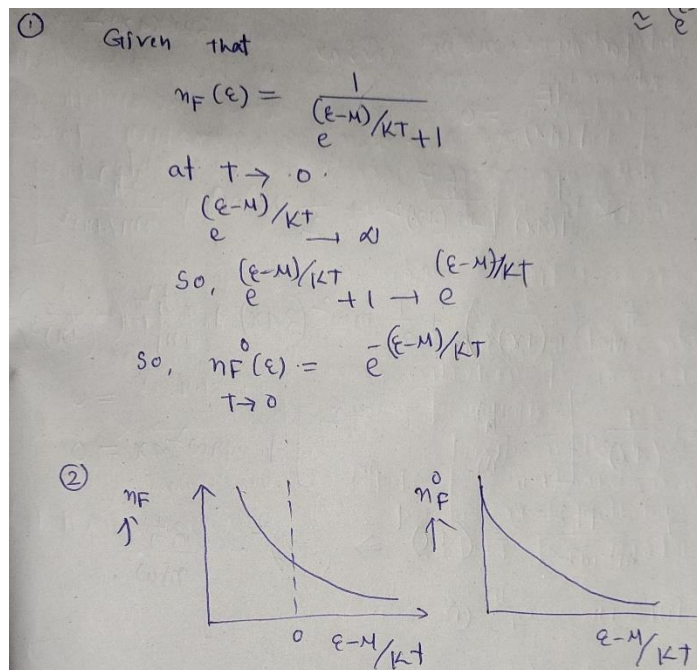 ≃ e
① Given that
nF (ε) = 1 / e^(ε-μ)/KT + 1
at T → 0.
e^(ε-μ)/KT → ∞
So, e^(ε-μ)/KT + 1 → e^(ε-μ)/KT
So, nF⁰(ε) = e^-(ε-μ)/KT
T→0
②
nF ↑
nF⁰ ↑
0 ε-μ/KT
ε-μ/KT